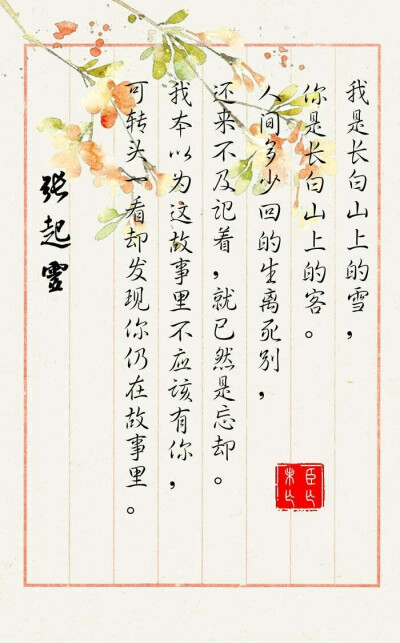 我是长白山上的雪，
你是长白山上的客。
人间多少回的生离死别，
还来不及记着，就已然是忘却。
我本以为这故事里不应该有你，
可转头一看却发现你仍在故事里。
张起霊